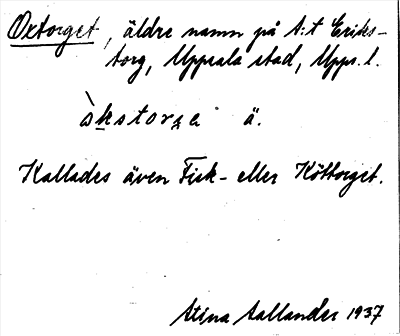 Oxtorget, äldre namn på S:t Eriks-
torg, Uppsala stad, Upps. l.
àkstorge ä.
Kallades även Fisk- eller Köttorget.
Stina Sallander 1937